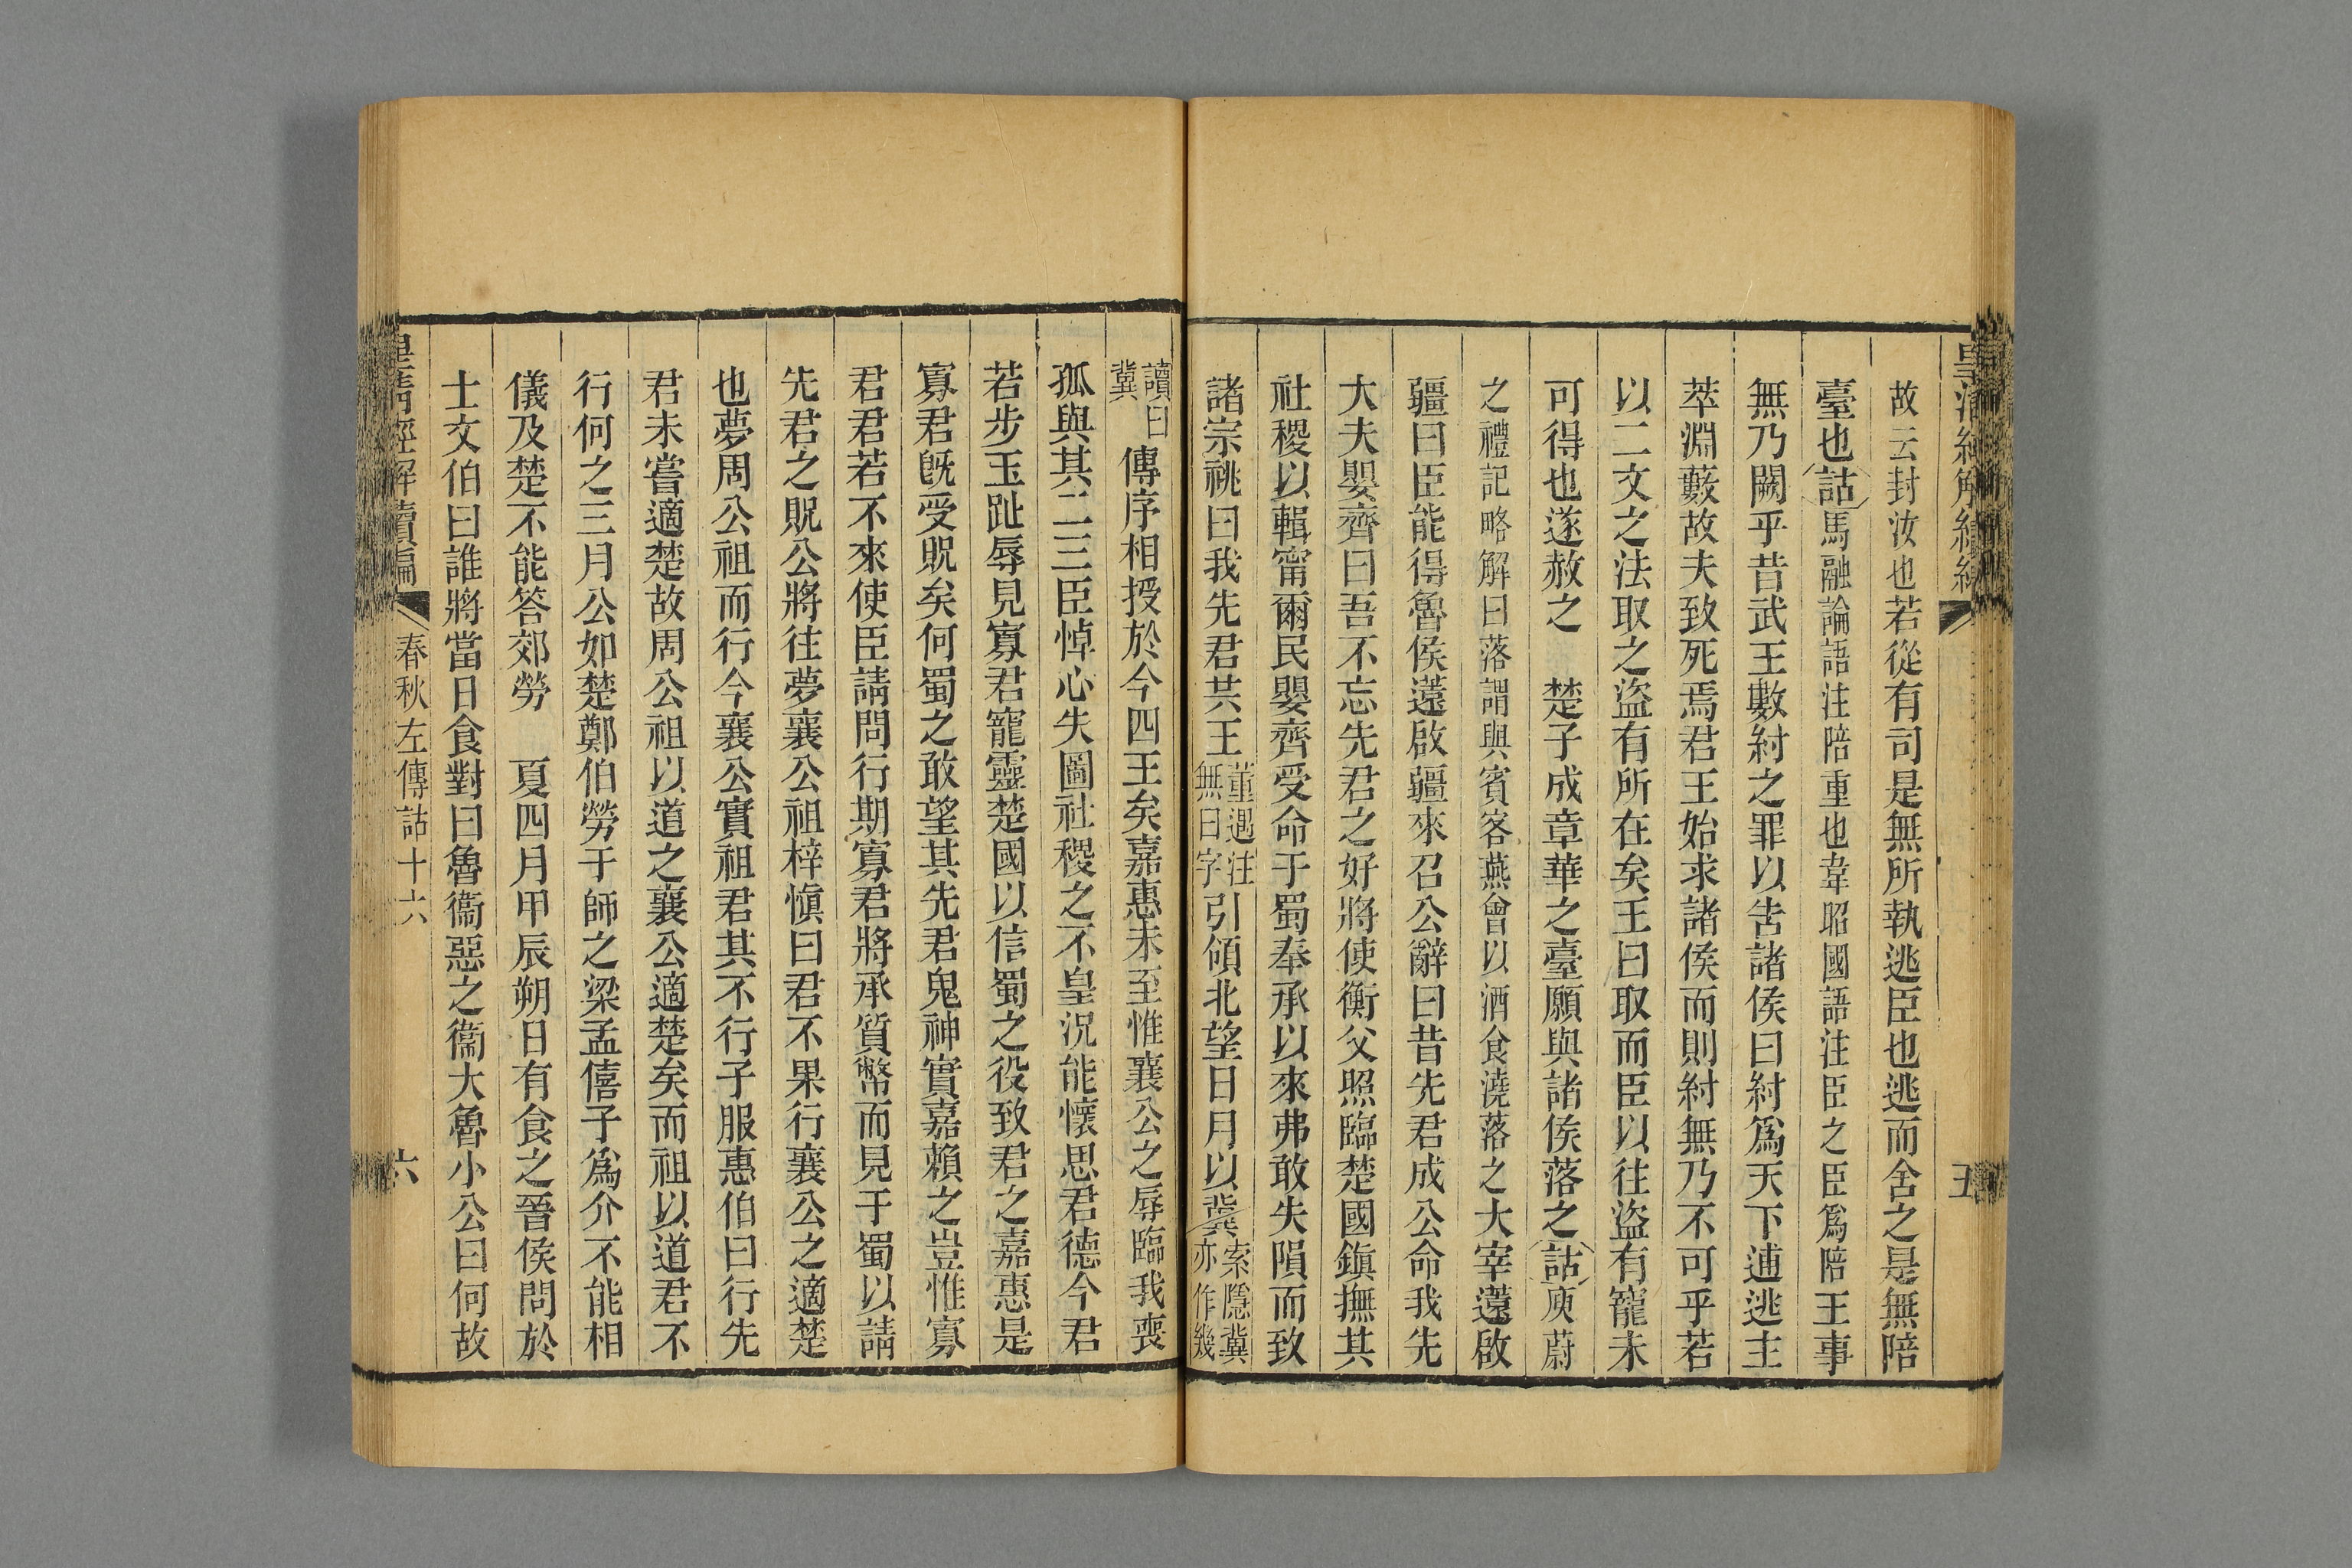 皇清經解續編
五
故云封汝也若從有司是無所執逃臣也逃而舍之是無陪
臺也詁馬融論語注陪重也韋昭國語注臣之臣爲陪王事
無乃闕乎昔武王數紂之罪以吿諸侯曰紂爲天下逋逃主
萃淵藪故夫致死焉君王始求諸侯而則紂無乃不可乎若
以二文之法取之盜有所在矣王曰取而臣以往盜有寵未
可得也遂赦之　楚子成章華之臺願與諸侯落之詁庾蔚
之禮記略解曰落謂與賓客燕會以酒食澆落之大宰薳啟
疆曰臣能得魯侯薳啟疆來召公辭曰昔先君成公命我先
大夫嬰齊曰吾不忘先君之好將使衡父照臨楚國鎭撫其
社稷以輯甯爾民嬰齊受命于蜀奉承以來弗敢失隕而致
諸宗祧曰我先君共王董遇注無日字引領北望日月以冀索隱冀亦作幾
讀曰冀傳序相授於今四王矣嘉惠未至惟襄公之辱臨我喪
孤與其二三臣悼心失圖社稷之不皇況能懷思君德今君
若步玉趾辱見寡君寵靈楚國以信蜀之役致君之嘉惠是
寡君旣受貺矣何蜀之敢望其先君鬼神實嘉賴之豈惟寡
君君若不來使臣請問行期寡君將承質幣而見于蜀以請
先君之貺公將往夢襄公祖梓愼曰君不果行襄公之適楚
也夢周公祖而行今襄公實祖君其不行子服惠伯曰行先
君未嘗適楚故周公祖以道之襄公適楚矣而祖以道君不
行何之三月公如楚鄭伯勞于師之梁孟僖子爲介不能相
儀及楚不能答郊勞　夏四月甲辰朔日有食之晉侯問於
士文伯曰誰將當日食對曰魯衞惡之衞大魯小公曰何故
皇淸經解續編
春秋左傳詁十六
六